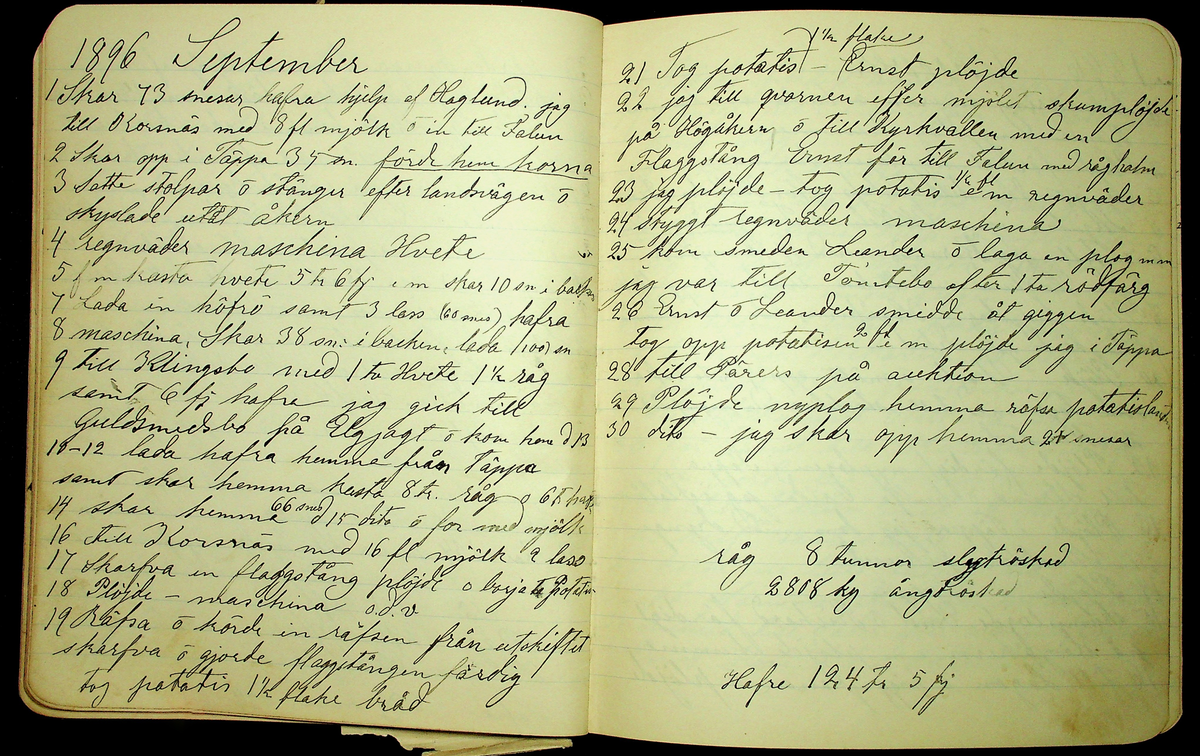 1896 September
1 Skar 73 snesar hafra hjelp af Haglund. jag
till Korsnäs med 8 fl mjölk ö in till Falun
2 Skar opp i Täppa 35 sn. förde hem korna
3 Satte stolpar ö stänger efter landsvägen ö
skyslade utåt åkern
4 regnväder maschena Hvete
5 fm kasta hvete 5 tr 6 fj em skar 10 sn i back
7 Lada in höfrö samt 3 lass (60 snes) hafra
8 maschina, Skar 38 sn: i backen, lada (100) sn
9 till Klingsbo med 1 tu Hvete 1 1/2 råg
samt 6 fj hafre jag gick till
Guldsmedsbo på Elgjagt ö kom hem d 13
10-12 lada hafra hemma från Täppa
samt skar hemma kasta 8 tr. råg o 6 tr
14 skar hemma 66 snes d 15 dito ö for med mjölk
16 till Korsnäs med 16 fl mjölk 2 lass
17 Skarfva en flaggstång plöjde o börjate Potatis
18 Plöjde - maschina o.d.v
19 Räfsa ö körde in räfsen från utskiftet
skarfva ö gjorde flaggstången färdig
tog potatis 1 1/2 flake bråd
1 1/2 flake
21 Tog potatis - Ernst plöjde
22 jag till qvarnen efter mjölet skumplöjde
på Högåkern ö till Kyrkvallen med en
Flaggstång Ernst för till Falun med råghalm
23 jag plöjde - tog potatis 1/2 fl em regnväder
24 styggt regnväder maschina
25 kom smeden Leander ö laga en plog mm
jag var till Tomtebo efter 1 ta rödfärg
26 Ernst ö Leander smidde åt giggen
tog opp potatisen 2 fl em plöjde jag i Täppa
28 till Pärers på auktion
29 Plöjde nyplog hemma räfsa potatisland
30 dito - jag skar opp hemma 21 snesar
råg 8 tunnor slagtröskad
2808 kg ångtröskad
Hafre 124 tr 5 fj